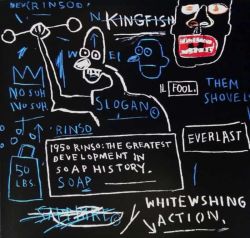 RINSO
KINGFISH
FOOL.
THEM
SHOVELS
NO SUH
NO SUH
SLOGAN
RINSO
EVERLAST
50
LBS.
1950 RINSO: THE GREATEST
DEVELOPMENT IN
SOAP HISTORY.
SOAP
WHITEWSHING
ACTION.